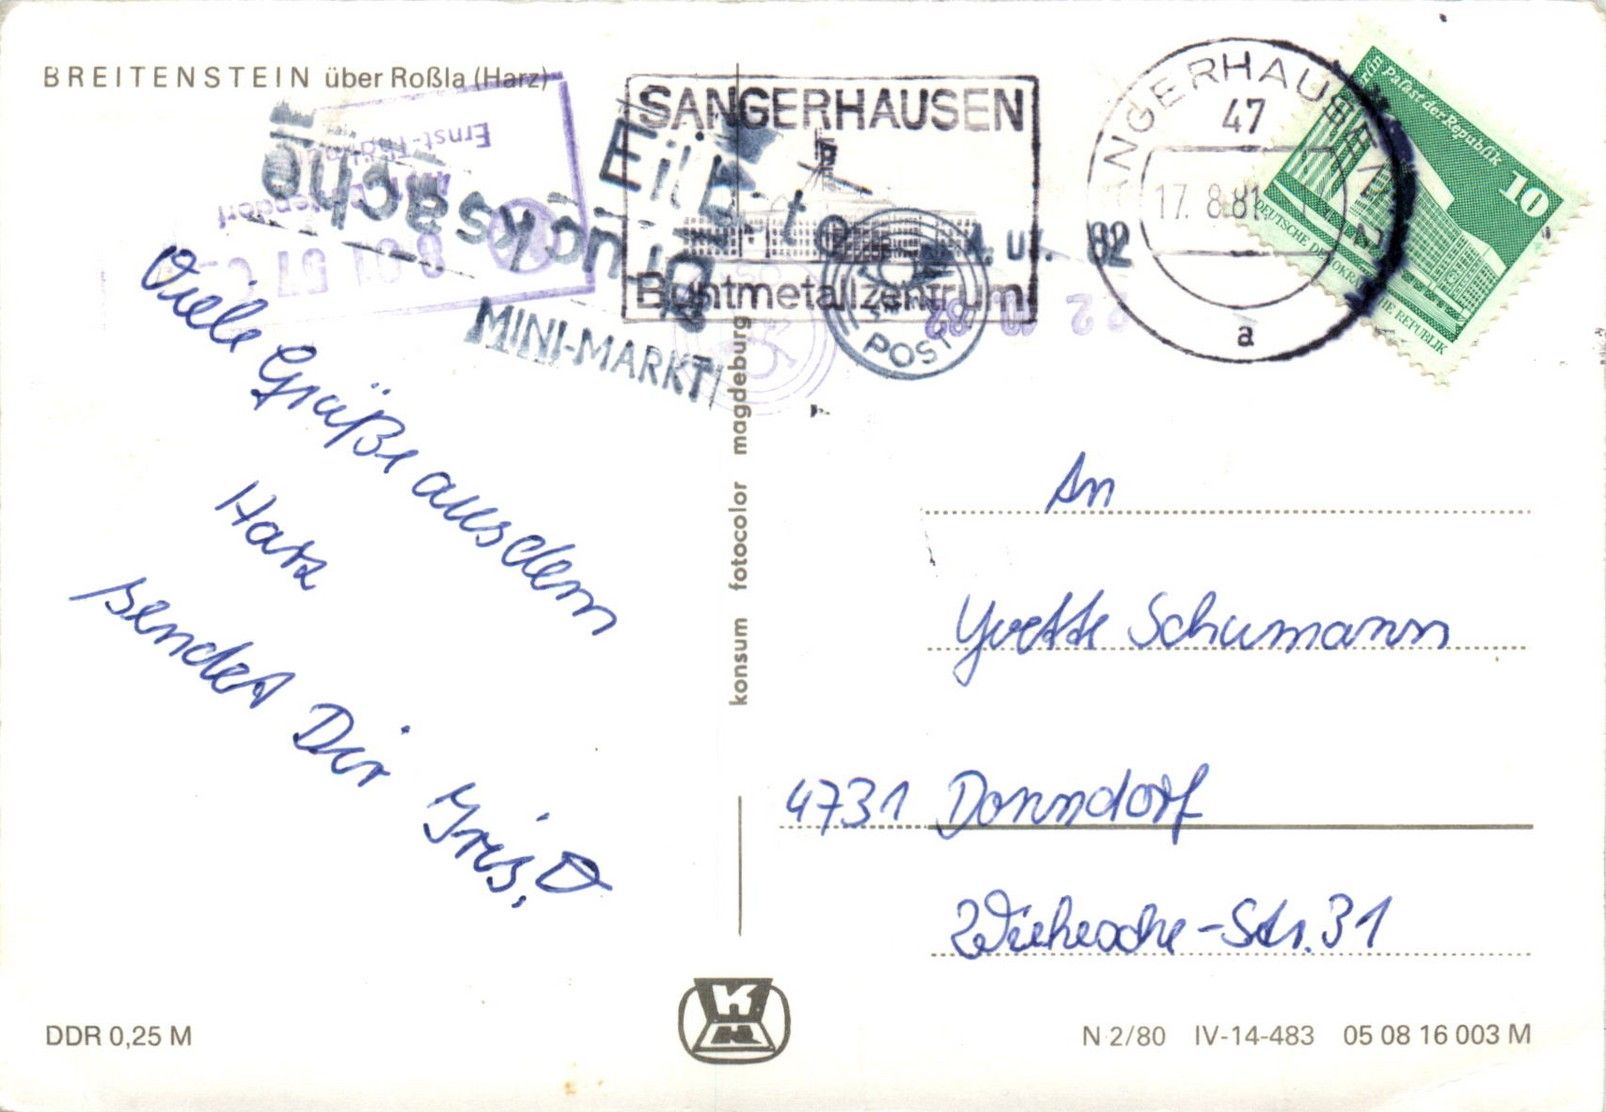 BREITENSTEIN über Roßla (Harz)
Ernst-Thälma
Drucksache
MINI-MARKT
Eil
SANGERHAUSEN
Buntmetallzentrum
POST
82
22 10 82
SANGERHAUSEN
47
17.8.81
a
Berlin Palast der Republik
10
DEUTSCHE DEMOKRATISCHE REPUBLIK
Viele Grüße aus dem
Harz
sendet Dir Iris.
konsum fotocolor magdeburg
An
Yvette Schumann
4731 Donndorf
Wiehesche-Str. 31
DDR 0,25 M
N 2/80 IV-14-483 05 08 16 003 M